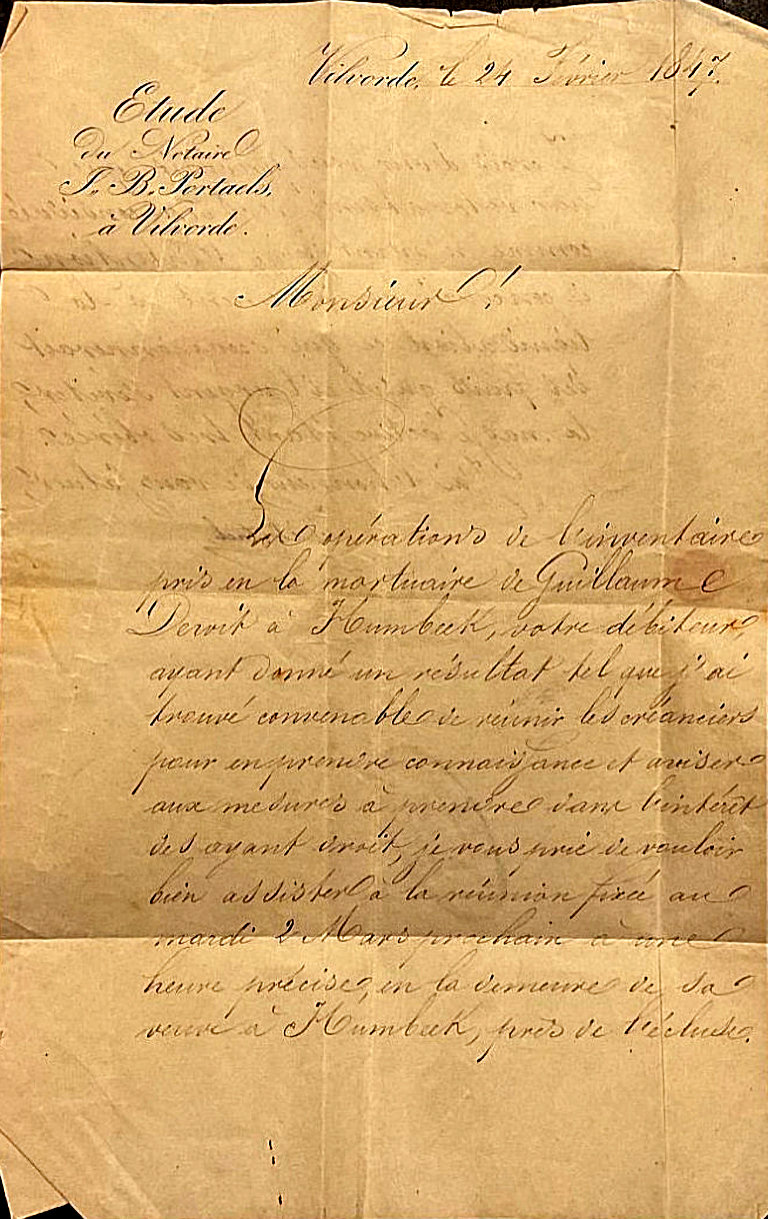 Vilvorde, le 24 Février 1847.
Etude
du Notaire
J. B. Portaels,
à Vilvorde.
Monsieur !
Les opérations de l'inventaire
pris en la mortuaire de Guillaume
Dewit à Humbeek, votre débiteur,
ayant donné un résultat tel que j'ai
trouvé convenable de réunir les créanciers
pour en prendre connaissance et aviser
aux mesures à prendre dans l'intérêt
des ayant droit, je vous prie de vouloir
bien assister à la réunion fixée au
mardi 2 Mars prochain à une
heure précise, en la demeure de sa
veuve à Humbeek, près de l'écluse.